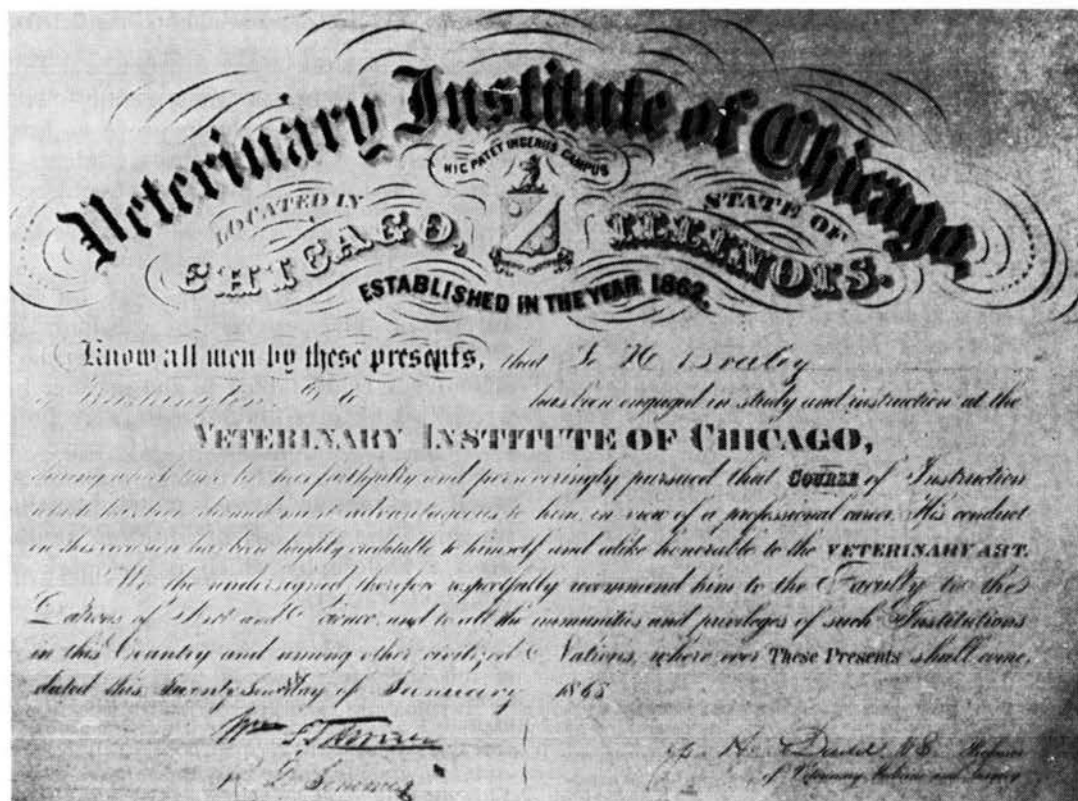 Veterinary Institute of Chicago,
HIC PATET INGENIIS CAMPUS
LOCATED IN STATE OF
CHICAGO, ILLINOIS.
ESTABLISHED IN THE YEAR 1862.
Know all men by these presents, that
has been engaged in study and instruction at the
VETERINARY INSTITUTE OF CHICAGO,
during which time he has faithfully and perseveringly pursued that COURSE of Instruction
which has been deemed most advantageous to him, in view of a professional career. His conduct
on this occasion has been highly creditable to himself and alike honorable to the VETERINARY ART.
We the undersigned, therefore respectfully recommend him to the Faculty, to the
Patrons of Art and Science and to all the immunities and privileges of such Institutions
in this Country and among other civilized Nations, where ever These Presents shall come.
dated this twenty day of January 1865
Wm
H. Dadd V.S. Professor
of Veterinary Medicine and Surgery